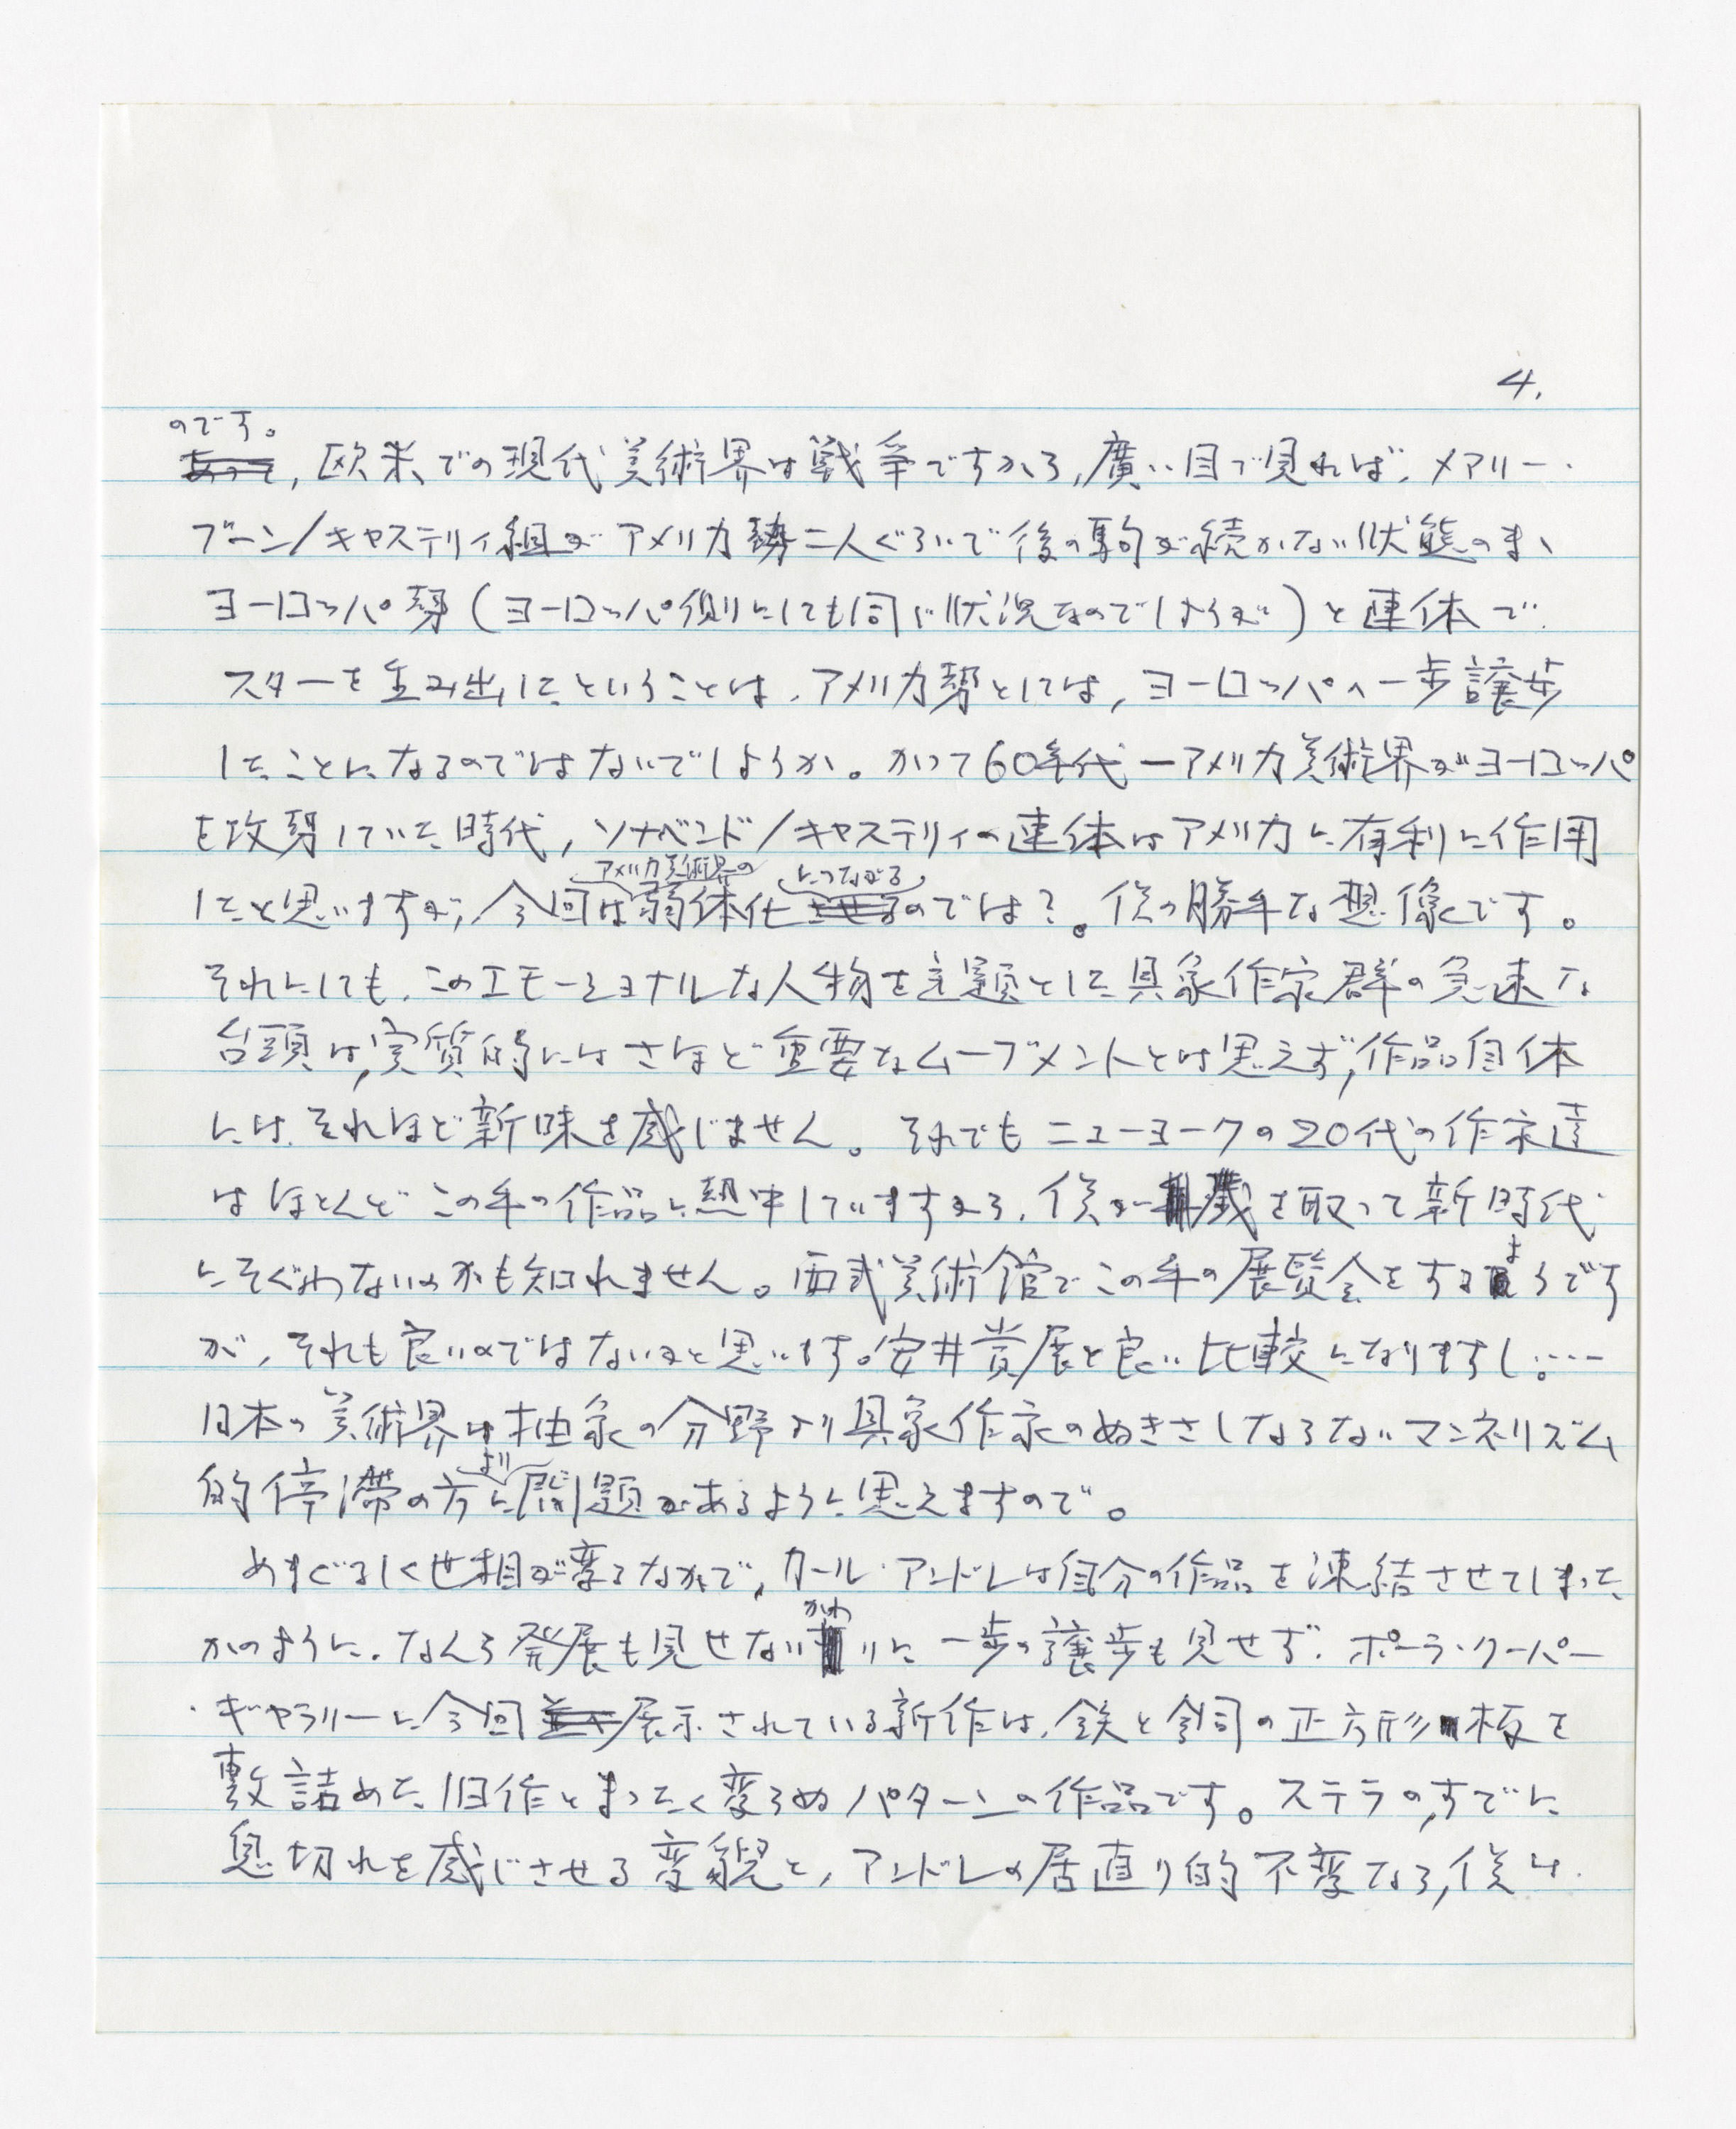 4.
のです。
あって, 欧米での現代美術界は戦争ですから, 廣い目で見れば, メアリー・
ブーン/キャステリィ組がアメリカ勢二人ぐらいで後の駒が続かない状態のまゝ
ヨーロッパ勢(ヨーロッパ側にしても同じ状況なのでしょうが)と連体で
スターを生み出したということは, アメリカ勢としては, ヨーロッパへ一歩譲歩
したことになるのではないでしょうか。かつて60年代ーアメリカ美術界がヨーロッパ
を攻勢していた時代, ソナベンド/キャステリィの連体はアメリカに有利に作用
アメリカ美術界の につながる
したと思いますが, 今回は弱体化させるのでは?。僕の勝手な想像です。
それにしても, このエモーショナルな人物を主題とした具象作家群の急速な
台頭は, 実質的にはさほど重要なムーブメントとは思えず, 作品自体
には, それほど新味を感じません。それでもニューヨークの20代の作家達
はほとんどこの手の作品に熱中していますから, 僕が歳を取って新時代
にそぐわないのかも知れません。西武美術館でこの手の展覧会をするようです
が, それも良いのではないかと思います。安井賞展と良い比較になりますし....
日本の美術界は抽象の分野より具象作家のぬきさしならないマンネリズム
より
的停滞の方に問題があるように思えますので。
めまぐるしく世相が変るなかで, カール・アンドレは自分の作品を凍結させてしまった
かのように, なんら発展も見せないかわりに一歩の譲歩も見せず, ポーラ・クーパー
・ギャラリーに今回展示されている新作は, 鉄と銅の正方形板を
敷詰めた旧作とまったく変らぬパターンの作品です。ステラの, すでに
息切れを感じさせる変貌と, アンドレの居直り的不変なら, 僕は